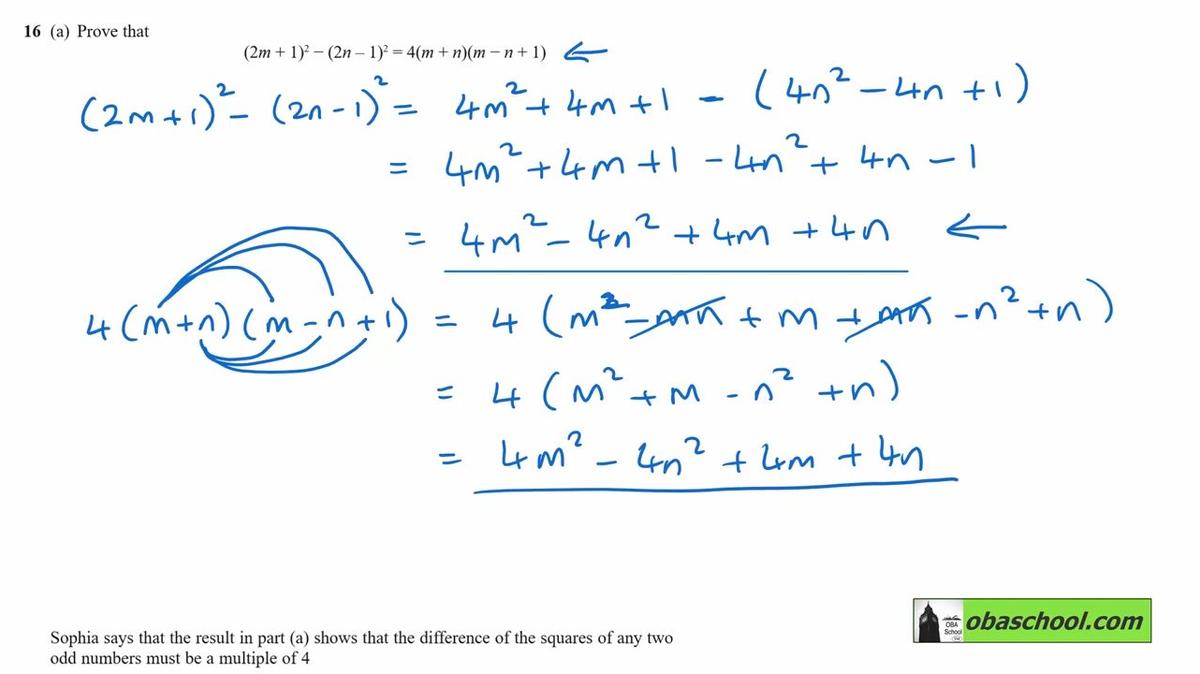 16 (a) Prove that
(2m + 1)² − (2n − 1)² = 4(m + n)(m − n + 1) ←
(2m+1)² − (2n−1)² = 4m² + 4m + 1 − (4n² − 4n + 1)
= 4m² + 4m + 1 − 4n² + 4n − 1
= 4m² − 4n² + 4m + 4n ←
4(m+n)(m−n+1) = 4(m² − mn + m + mn − n² + n)
= 4(m² + m − n² + n)
= 4m² − 4n² + 4m + 4n
OBA School
obaschool.com
Sophia says that the result in part (a) shows that the difference of the squares of any two
odd numbers must be a multiple of 4